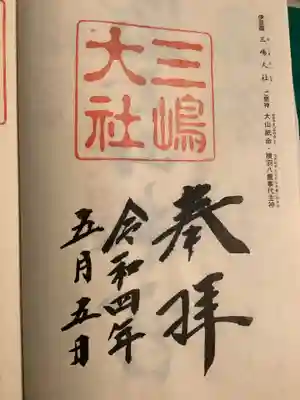 伊豆國
三嶋大社
ご祭神 大山祇命・積羽八重事代主神
三嶋
大社
奉拝
令和四年
五月五日